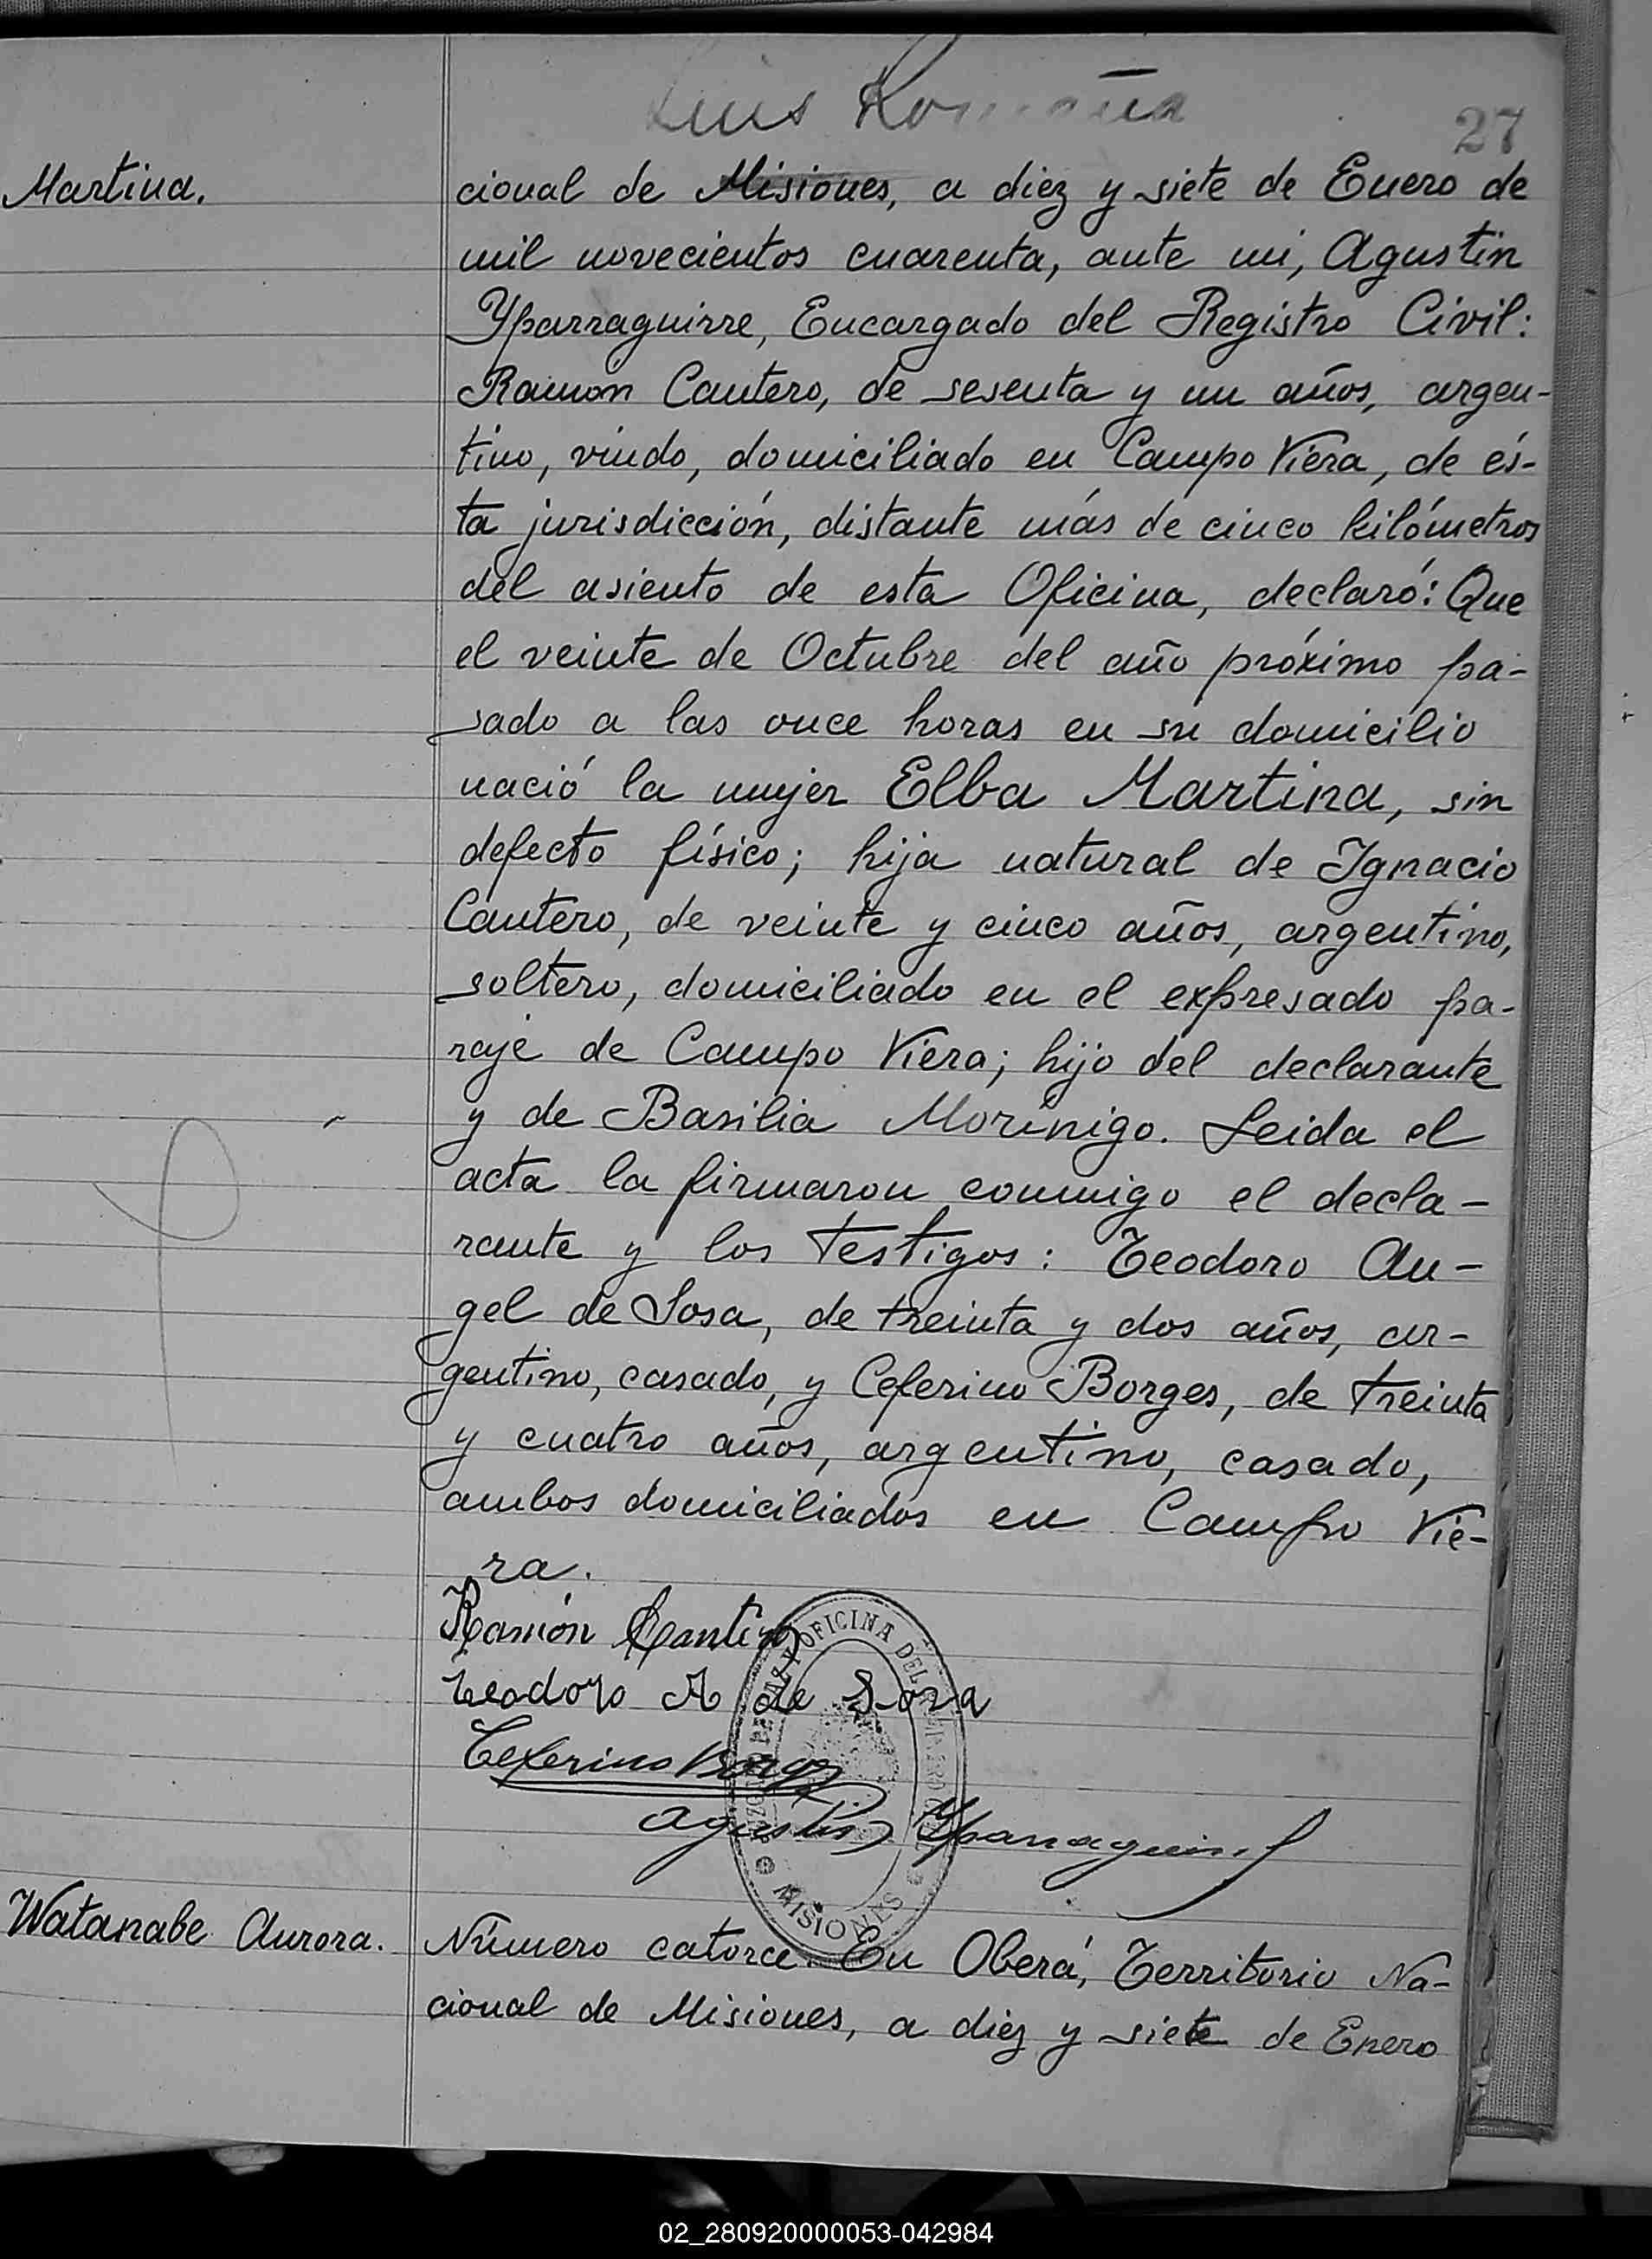 Luis Romaña
27
Martina.
cional de Misiones, a diez y siete de Enero de
mil novecientos cuarenta, ante mi, Agustin
Yparraguirre, Encargado del Registro Civil:
Ramon Cantero, de sesenta y un años, argen-
tino, viudo, domiciliado en Campo Viera, de és-
ta jurisdicción, distante más de cinco kilómetros
del asiento de esta Oficina, declaró: Que
el veinte de Octubre del año próximo pa-
sado a las once horas en su domicilio
nació la mujer Elba Martina, sin
defecto físico; hija natural de Ignacio
Cantero, de veinte y cinco años, argentino,
soltero, domiciliado en el expresado pa-
raje de Campo Viera; hijo del declarante
y de Basilia Morínigo. Leida el
acta la firmaron conmigo el decla-
rante y los testigos: Teodoro An-
gel de Sosa, de treinta y dos años, ar-
gentino, casado, y Ceferino Borges, de treinta
y cuatro años, argentino, casado,
ambos domiciliados en Campo Vie-
ra.
Ramón
Teodoro A de Sosa
Ceferino Borges
Agustin Yparraguirre
OFICINA DEL
MISIONES
Watanabe Aurora.
Número catorce. En Oberá, Territorio Na-
cional de Misiones, a diez y siete de Enero
02_280920000053-042984